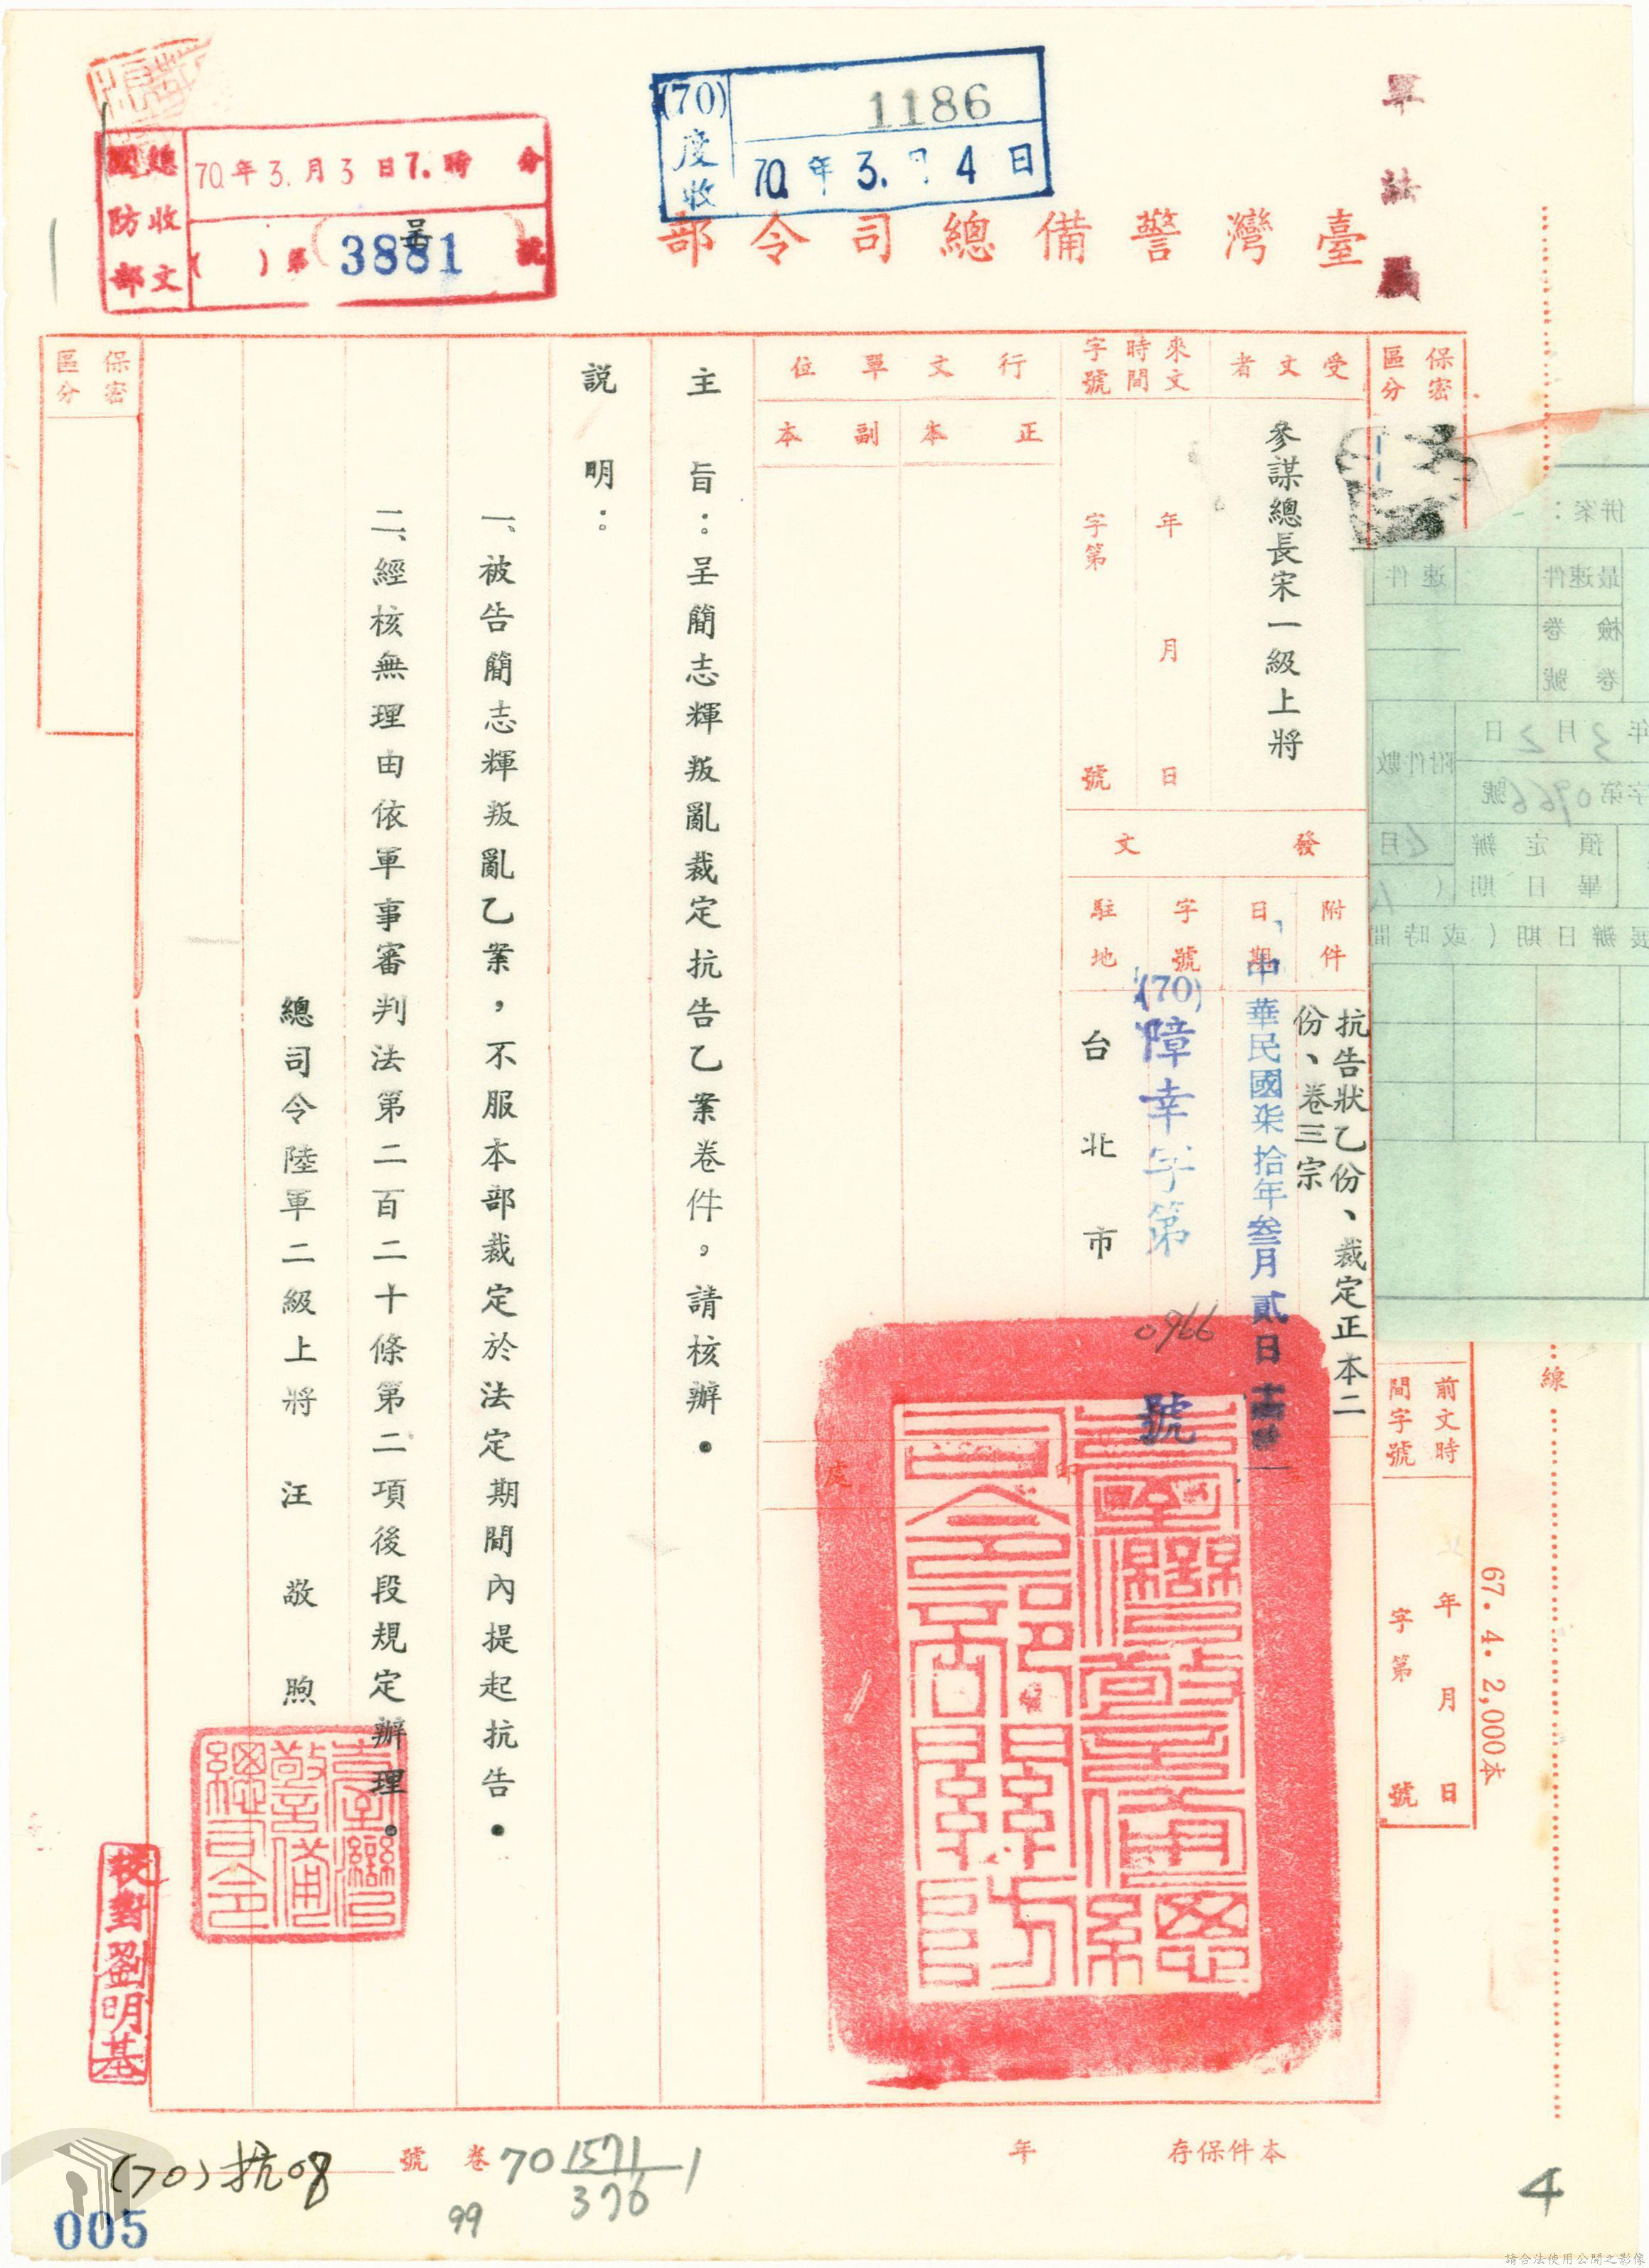 軍法局
(70)度收
1186
70年3.月4日
國防部
總收文
70年3.月3日7.時 分
( )第3881號
臺灣警備總司令部
保密區分
受文者
參謀總長宋一級上將
來文時間字號
年 月 日
字第 號
行文單位
正本
副本
發文
附件
抗告狀乙份、裁定正本二份、卷三宗
日期
中華民國柒拾年叁月貳日
字號
(70)障幸字第0966號
駐地
台北市
主旨：呈簡志輝叛亂裁定抗告乙案卷件，請核辦。
説明：
一、被告簡志輝叛亂乙案，不服本部裁定於法定期間內提起抗告。
二、經核無理由依軍事審判法第二百二十條第二項後段規定辦理。
總司令陸軍二級上將 汪敬煦
臺灣警備總司令
校對劉明基
保密區分
前文時間字號
年 月 日
字第 號
67. 4. 2,000本
線
併案：
最速件
速件
檢卷
卷號
年3月2日
附件數
字第0966號
預定辦畢日期
展辦日期(或時間
本件保存 年
卷 號
70 1571/376 1
99
(70)抗08
005
4
請合法使用公開之影像